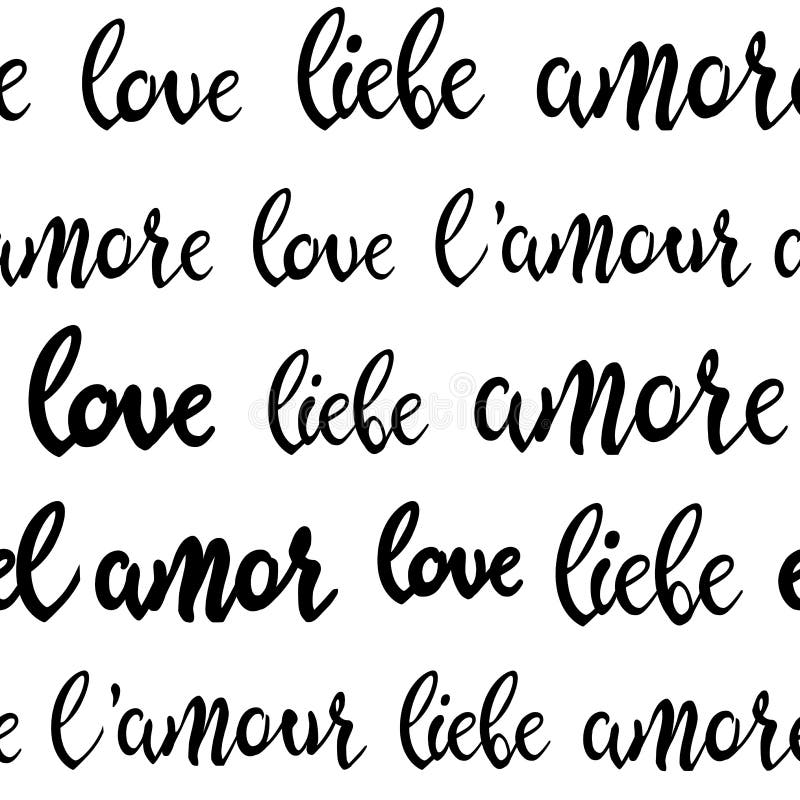 e love liebe amore
amore love l'amour a
love liebe amore
el amor love liebe e
e l'amour liebe amore